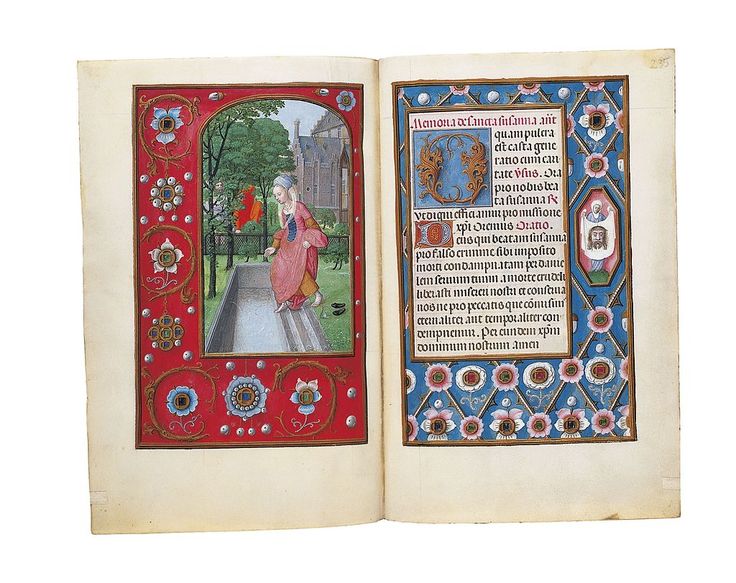 235
Memoria de sancta susanna ant
quam pulcra
est casta gene
ratio cum cari
tate ỹsus. Ora
pro nobis bea
ta susanna
ut digni efficiamur promissione
xpi Oremus Oratio.
Deus qui beatam susanna
pro falso crimine sibi imposito
morti condampnatam per danie
lem servum tuum a morte crudeli
liberasti miserere nostri et conserva
nos ne pro peccatis que comisim
eternaliter aut temporaliter con
dempnemur. Per eundem xpm
dominum nostrum amen